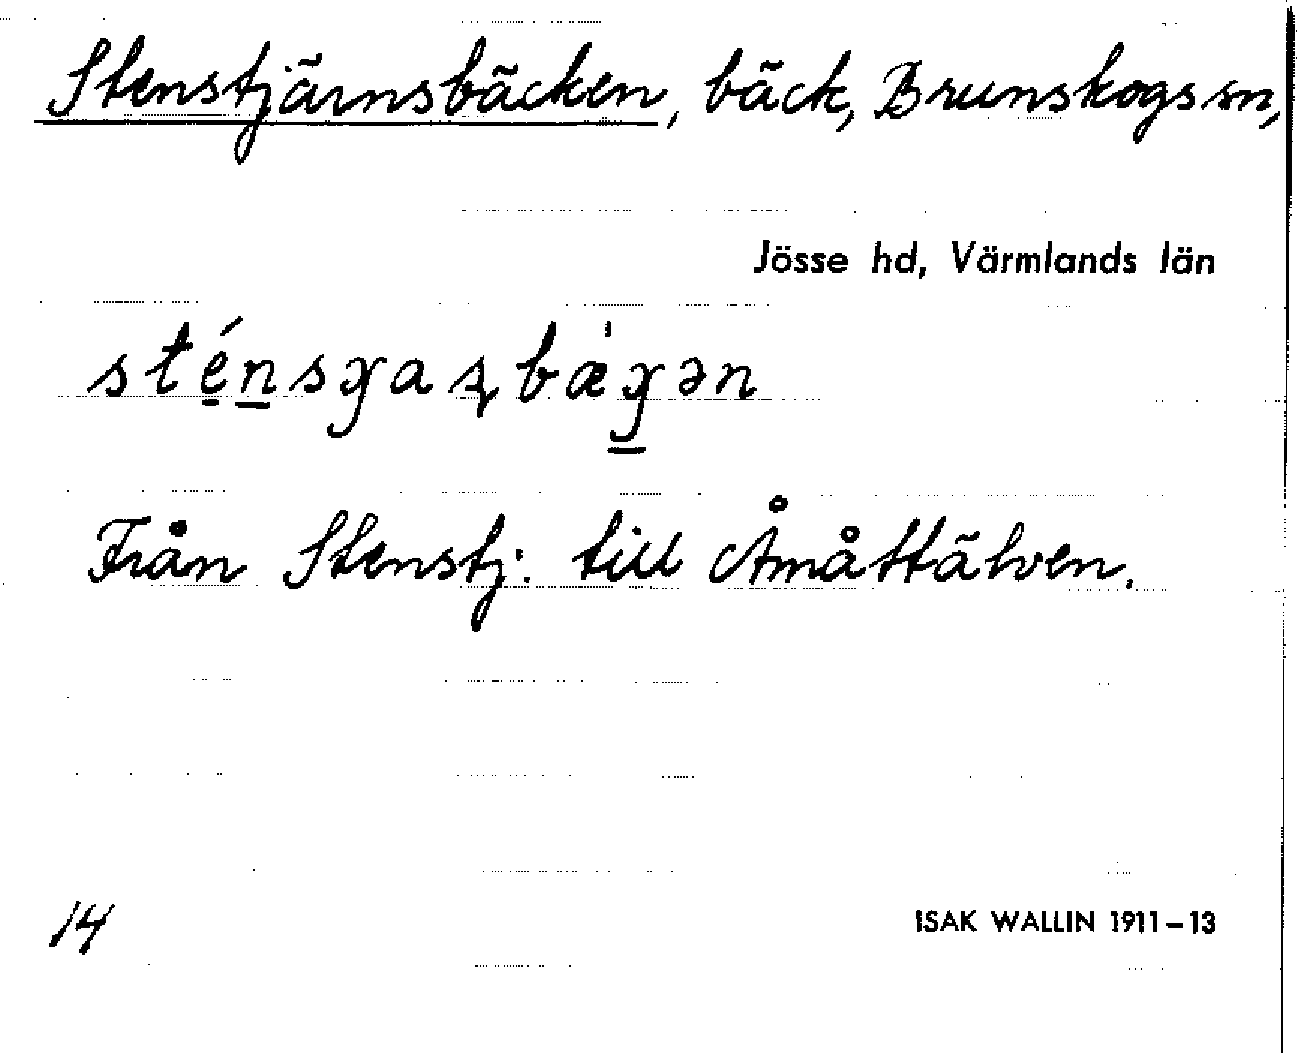 Stenstjärnsbäcken, bäck, Brunskogs sn,
Jösse hd, Värmlands län
Från Stenstj: till Åmåttälven.
14
ISAK WALLIN 1911–13